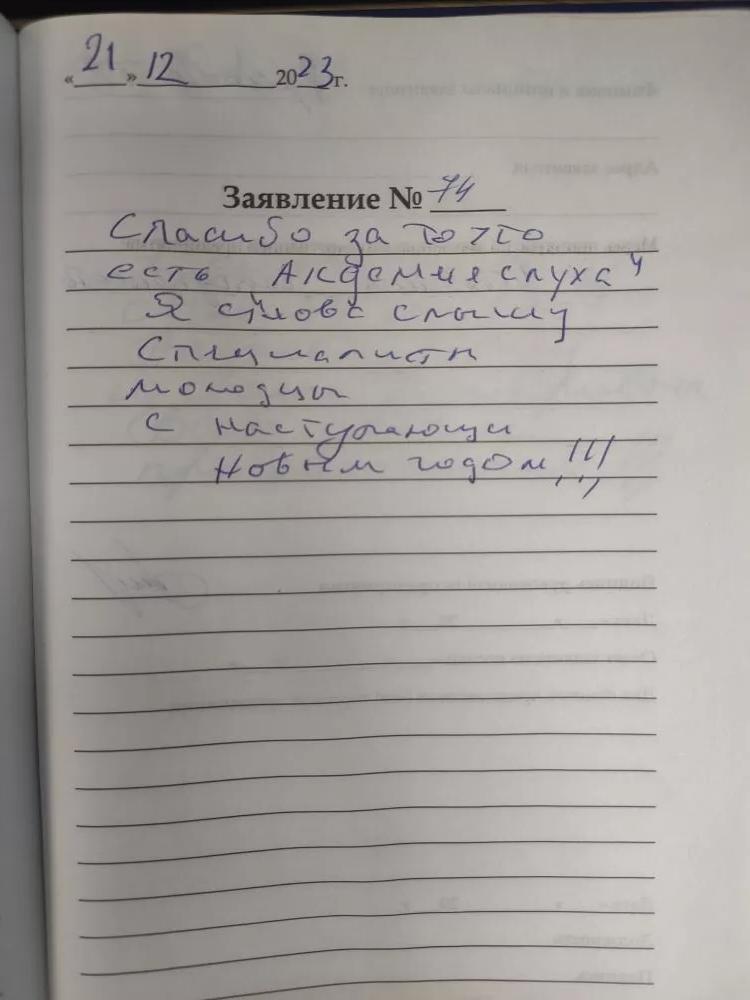 «21» 12 2023г.
Заявление № 74
Спасибо за то что
есть Академия слуха"
Я снова слышу
Специалисты
молодцы
с наступающи
Новым годом!!!